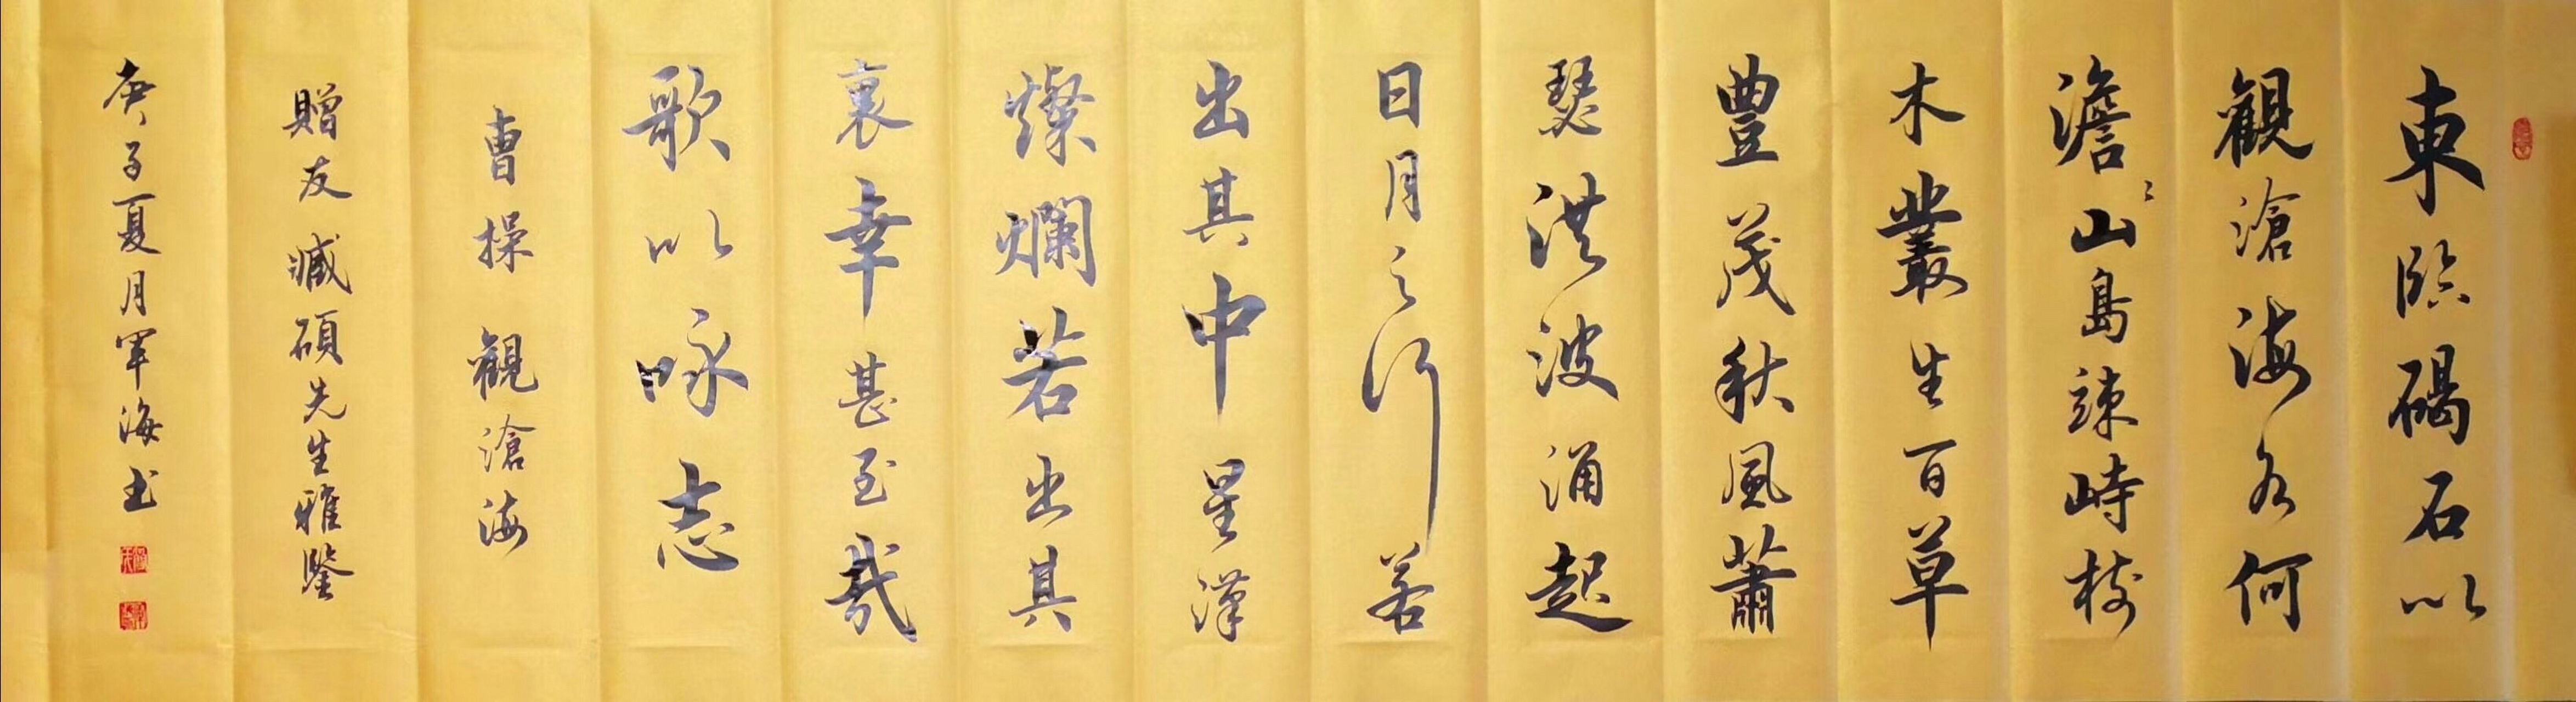 東臨碣石以
觀滄海水何
澹〻山島竦峙樹
木叢生百草
豊茂秋風蕭
瑟洪波涌起
日月之行若
出其中星漢
燦爛若出其
裏幸甚至哉
歌以咏志
曹操觀滄海
贈友臧碩先生雅鑒
庚子夏月軍海书